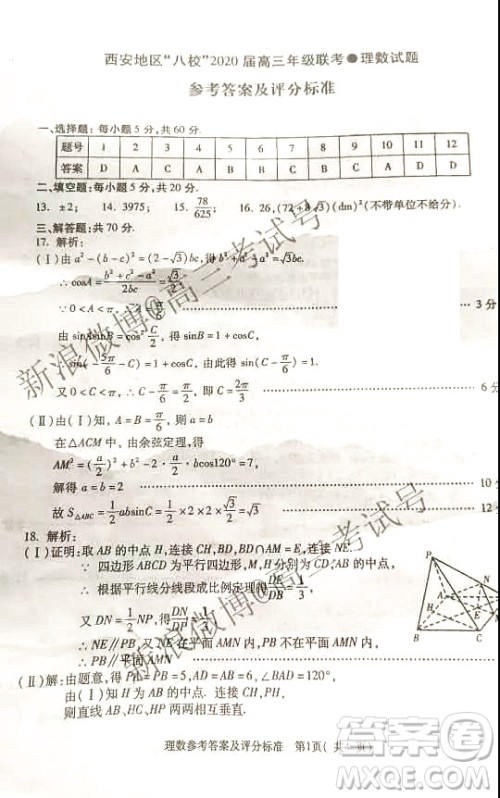 西安地区“八校”2020届高三年级联考●理数试题
参考答案及评分标准
一、选择题：每小题5分，共60分.
题号 1 2 3 4 5 6 7 8 9 10 11 12
答案 D A C A B C A D D
二、填空题：每小题5分，共20分.
13. ±2； 14. 3975； 15. 78/625； 16. 26，(72+8√3)(dm)²(不带单位不给分).
三、解答题：共70分.
17. 解析：
(Ⅰ)由a²-(b-c)²=(2-√3)bc，
∴cosA=(b²+c²-a²)/2bc=√3/2
∵0<A<π，
3分
由sinAsinB=cos²C/2，得sinB=1+cosC
sin(5π/6-C)=1+cosC，由此得
又∵0<C<π，∴C=2π/3 6分
(Ⅱ)由(Ⅰ)知，A=B=π/6，∴a=b
在△ACM中，由余弦定理，得
AM²=(a/2)²+b²-2·a/2·bcos120°
解得a=b=2 10
故S△ABC=1/2absinC=1/2×2×2×√3/2=√3
18. 解析：
(Ⅰ)证明：取AB的中点H，连接CH，BD，BD∩AM=E，连接NE.
∵四边形ABCD为平行四边形，M，H分别为CD
∴根据平行线分线段成比例定理得DE/DB=1/3，
又DN=1/2NP，∴DN/DP=1/3
∴NE∥PB，又NE在平面AMN内，PB不在平面AMN内，
∴PB∥平面AMN
P
N
A
E
H
B
C
(Ⅱ)解：由题意，得PC=PD=6，∠BAD=120°，
由(Ⅰ)知H为AB的中点. 连接CH，PH
则直线AB、DC均与平面PHC垂直.
理数参考答案及评分标准 第1页(共
新浪微博@高三考试号
新浪微博@高三考试号
答案圈